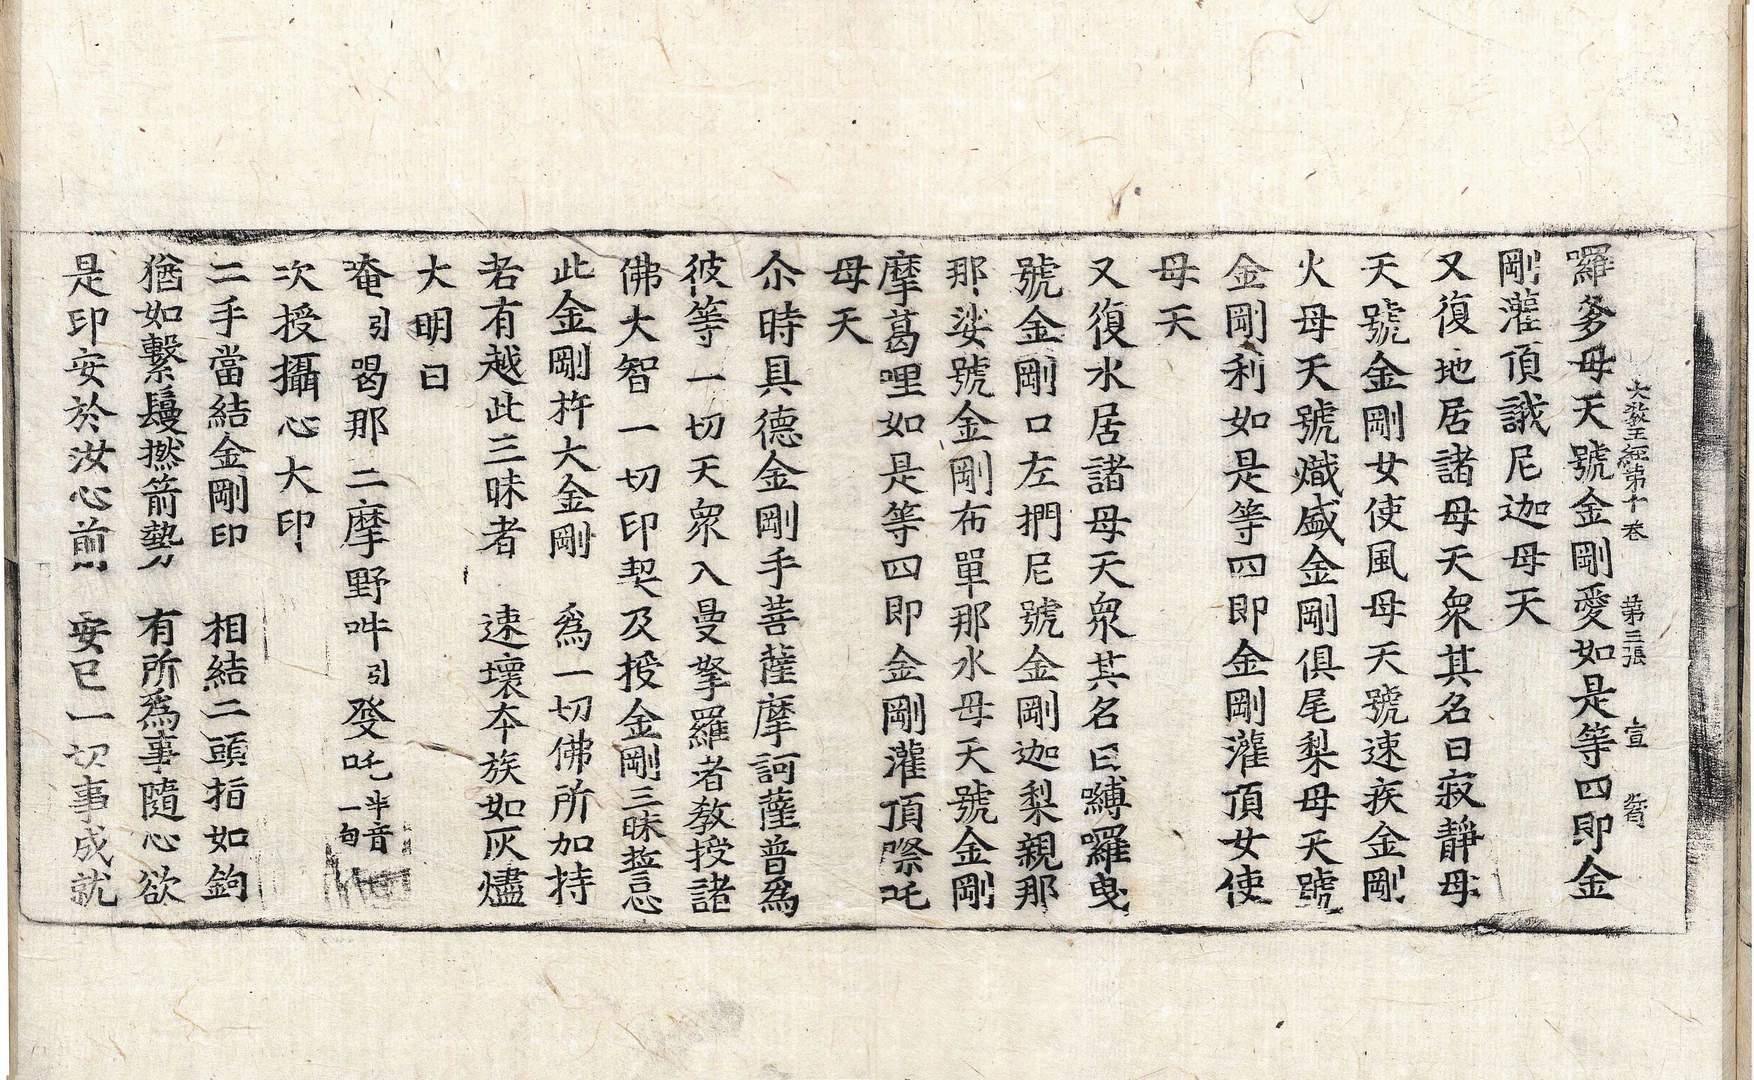 囉爹母天號金剛愛如是等四即金
大教王經第十卷 第三張 宣
剛灌頂誐尼迦母天
又復地居諸母天衆其名曰寂靜母
天號金剛女使風母天號速疾金剛
火母天號熾盛金剛俱尾梨母天號
金剛利如是等四即金剛灌頂女使
母天
又復水居諸母天衆其名曰嚩囉曳
號金剛口左捫尼號金剛迦梨親那
那娑號金剛布單那水母天號金剛
摩葛哩如是等四即金剛灌頂際吒
母天
尒時具德金剛手菩薩摩訶薩普爲
彼等一切天衆入曼拏羅者教授諸
佛大智一切印契及授金剛三昧誓言
此金剛杵大金剛 爲一切佛所加持
若有越此三昧者 速壞本族如灰燼
大明曰
唵引喝那二摩野吽引發吒半音一句
次授攝心大印
二手當結金剛印 相結二頭指如鉤
猶如繫鬘撚箭勢 有所爲事隨心欲
是印安於汝心前 安已一切事成就